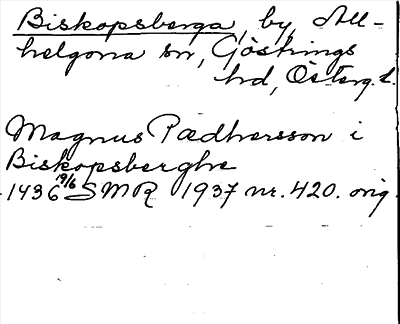 Biskopsberga, by, All-
helgona sn, Göstrings
hd, Österg. l.
Magnus Pædhersson i
Biskopsberghe
1436 19/6 SMR 1937 nr. 420. orig.